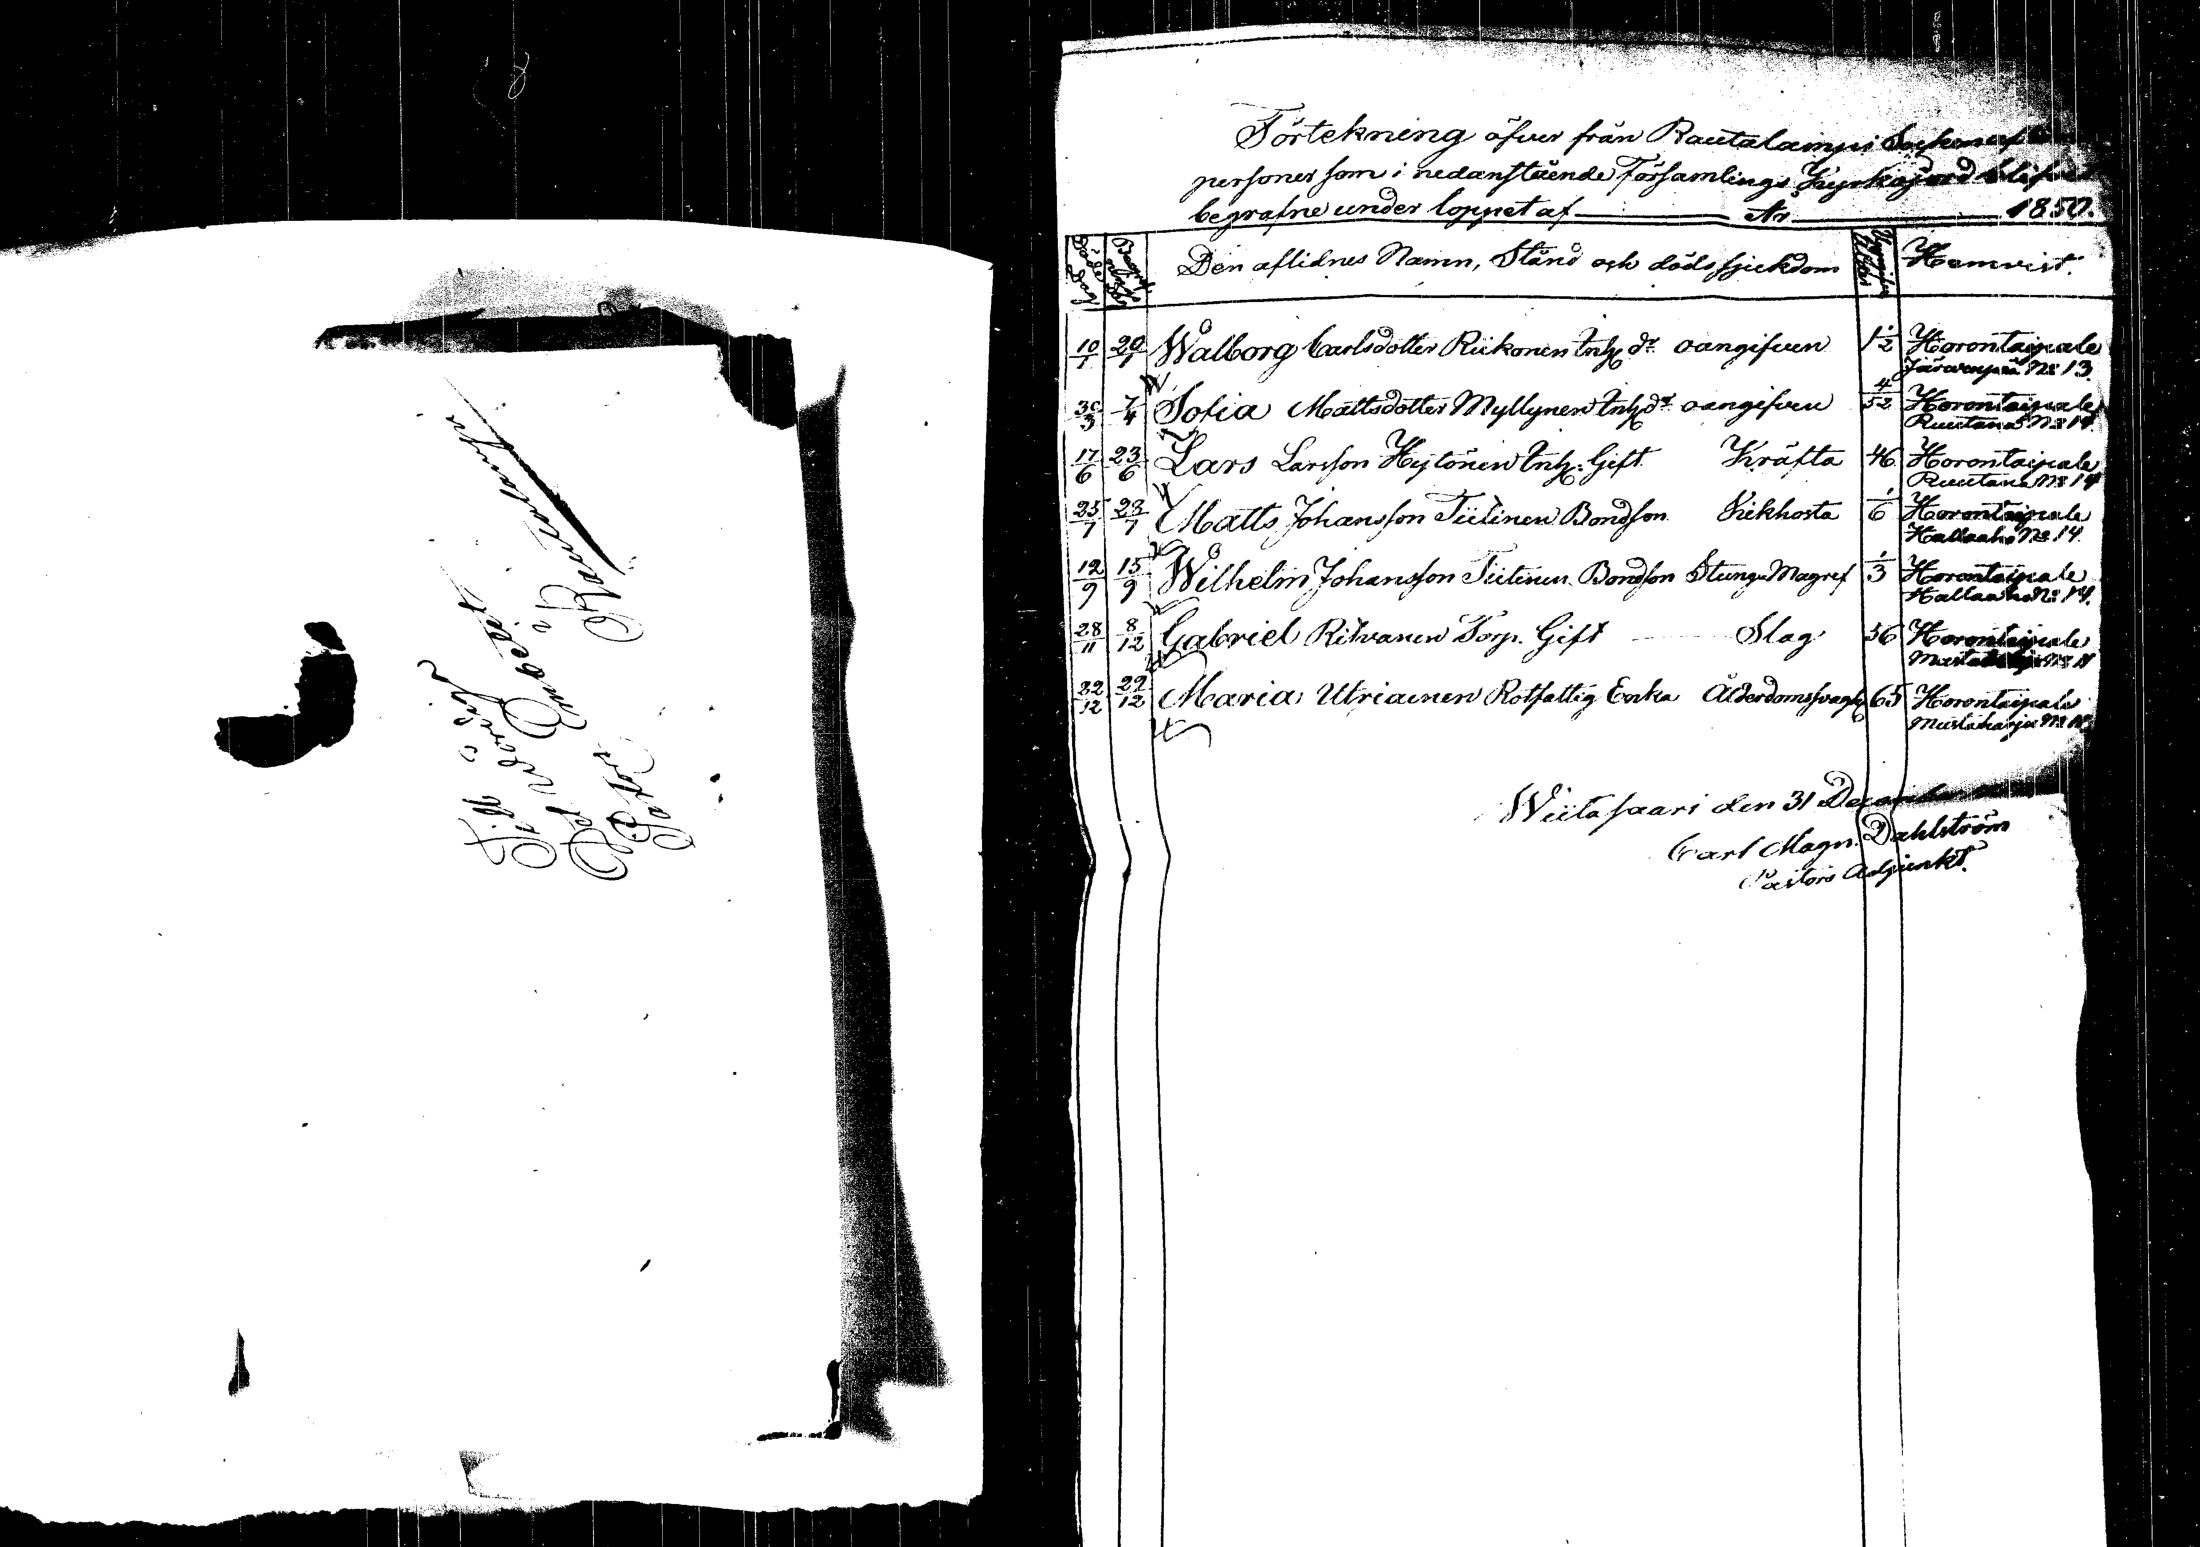 Till
Pastors Embetet
i Rautalampi
Förtekning öfver från Rautalampi Socken
personer som i nedanstående Församlings Kyrkogård blifvit
begrafne under loppet af År 1850.
Döds Dag Begrafn. Den aflidnes Namn, Stånd och dödssjuckdom Hemvist.
10/1 20/1 Walborg Carlsdotter Riikonen Inh. dr oangifven 1 1/2 Horontaipale
Järvenpää No 13.
30/3 7/4 Sofia Mattsdotter Myllynen Inh. dr oangifven 4/52 Horontaipale
Ruutana No 14.
17/6 23/6 Lars Larsson Hytönen Inh. Gift Kräfta 46 Horontaipale
Ruutana No 14
25/7 28/7 Matts Johansson Tiitinen Bondson Kikhosta 1/6 Horontaipale
Hallaaho No 14.
12/9 15/9 Wilhelm Johansson Tiitinen Bondson Stung o Magref 1/3 Horontaipale
Hallaaho No 14.
28/11 8/12 Gabriel Ritvanen Torp. Gift Slag 56 Horontaipale
22/12 29/12 Maria Utriainen Rotfattig Enka Ålderdomssvaghet 65 Horontaipale
Mustaharju
Wiitasaari den 31 December
Carl Magn. Dahlström
Pastors Adjunkt.